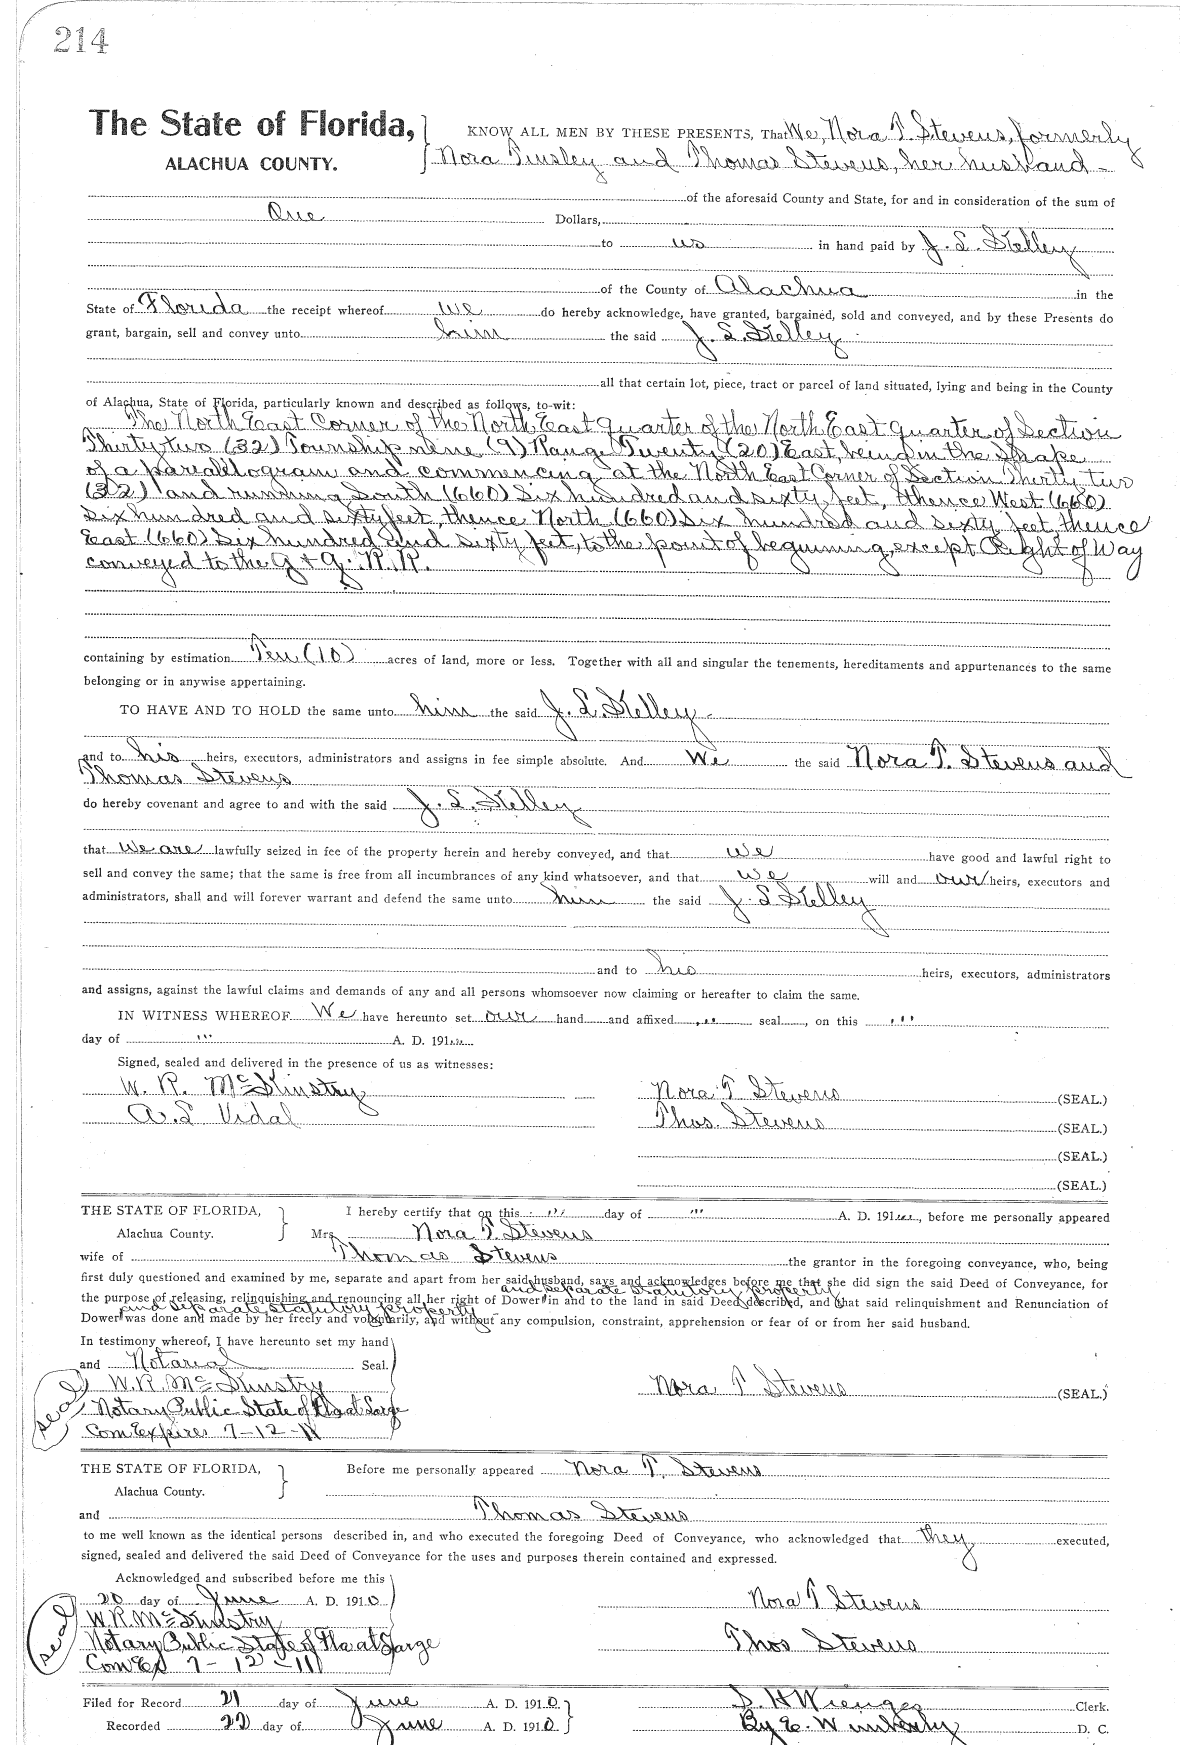 214
The State of Florida,
ALACHUA COUNTY.
KNOW ALL MEN BY THESE PRESENTS, That We, Nora T. Stevens, formerly
Nora Tinsley and Thomas Stevens, her husband
of the aforesaid County and State, for and in consideration of the sum of
One Dollars,
to us in hand paid by J. L. Kelley
of the County of Alachua in the
State of Florida the receipt whereof we do hereby acknowledge, have granted, bargained, sold and conveyed, and by these Presents do
grant, bargain, sell and convey unto him the said J. L. Kelley
all that certain lot, piece, tract or parcel of land situated, lying and being in the County
of Alachua, State of Florida, particularly known and described as follows, to-wit:
The North East Corner of the North East Quarter of the North East Quarter of Section
Thirty two (32) Township nine (9) Range Twenty (20) East, being in the shape
of a parallelogram and commencing at the North East Corner of Section Thirty two
(32) and running South (660) Six hundred and sixty feet, thence West (660)
six hundred and sixty feet, thence North (660) Six hundred and sixty feet, thence
East (660) Six hundred and sixty feet, to the point of beginning, except Right of Way
conveyed to the G & G. R.R.
containing by estimation Ten (10) acres of land, more or less. Together with all and singular the tenements, hereditaments and appurtenances to the same
belonging or in anywise appertaining.
TO HAVE AND TO HOLD the same unto him the said J. L. Kelley
and to his heirs, executors, administrators and assigns in fee simple absolute. And We the said Nora T. Stevens and
Thomas Stevens
do hereby covenant and agree to and with the said J. L. Kelley
that we are lawfully seized in fee of the property herein and hereby conveyed, and that we have good and lawful right to
sell and convey the same; that the same is free from all incumbrances of any kind whatsoever, and that we will and our heirs, executors and
administrators, shall and will forever warrant and defend the same unto him the said J. L. Kelley
and to his heirs, executors, administrators
and assigns, against the lawful claims and demands of any and all persons whomsoever now claiming or hereafter to claim the same.
IN WITNESS WHEREOF We have hereunto set our hand and affixed " seal, on this "
day of " A. D. 191
Signed, sealed and delivered in the presence of us as witnesses:
W. R. McKinstry Nora T Stevens (SEAL.)
A. L Vidal Thos. Stevens (SEAL.)
(SEAL.)
(SEAL.)
THE STATE OF FLORIDA, I hereby certify that on this " day of " A. D. 191 , before me personally appeared
Alachua County. Mrs. Nora T Stevens
wife of Thomas Stevens the grantor in the foregoing conveyance, who, being
first duly questioned and examined by me, separate and apart from her said husband, says and acknowledges before me that she did sign the said Deed of Conveyance, for
and separate statutory property
the purpose of releasing, relinquishing and renouncing all her right of Dower in and to the land in said Deed described, and that said relinquishment and Renunciation of
and separate statutory property
Dower was done and made by her freely and voluntarily, and without any compulsion, constraint, apprehension or fear of or from her said husband.
In testimony whereof, I have hereunto set my hand
and Notarial Seal.
W. R. McKinstry Nora T Stevens (SEAL.)
seal
Notary Public State of Fla at Large
Com Expires 7-12-11
THE STATE OF FLORIDA, Before me personally appeared Nora T. Stevens
Alachua County.
and Thomas Stevens
to me well known as the identical persons described in, and who executed the foregoing Deed of Conveyance, who acknowledged that they executed,
signed, sealed and delivered the said Deed of Conveyance for the uses and purposes therein contained and expressed.
Acknowledged and subscribed before me this
20 day of June A. D. 1910 Nora T Stevens
seal
W. R. McKinstry
Notary Public State of Fla at Large Thos Stevens
Com Ex 7-12-11
Filed for Record 21 day of June A. D. 1910 S. H Wienges Clerk.
Recorded 22 day of June A. D. 1910 By E. Wimberly D. C.